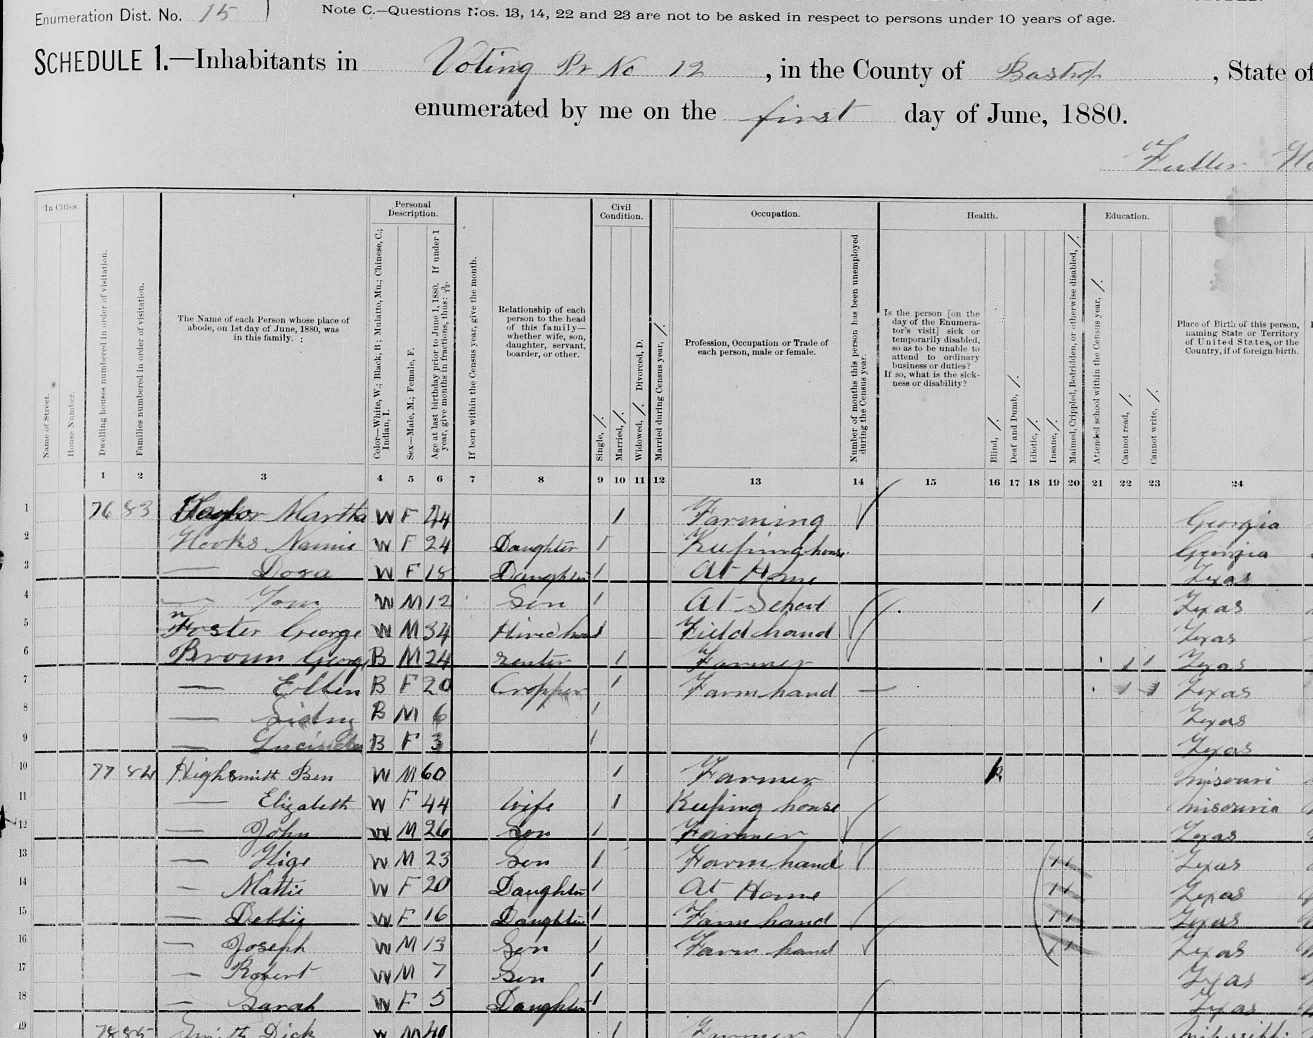 Enumeration Dist. No. 15
Note C.—Questions Nos. 13, 14, 22 and 23 are not to be asked in respect to persons under 10 years of age.
SCHEDULE 1.—Inhabitants in Voting Pr No 12, in the County of Bastrop, State of
enumerated by me on the first day of June, 1880.
Fuller
In Cities.
Name of Street.
House Number.
Dwelling houses numbered in order of visitation.
Families numbered in order of visitation.
The Name of each Person whose place of abode, on 1st day of June, 1880, was in this family.
Personal Description.
Color—White, W.; Black, B; Mulatto, Mu.; Chinese, C.; Indian, I.
Sex—Male, M.; Female, F.
Age at last birthday prior to June 1, 1880. If under 1 year, give months in fractions, thus: 3/12.
If born within the Census year, give the month.
Relationship of each person to the head of this family—whether wife, son, daughter, servant, boarder, or other.
Civil Condition.
Single, /.
Married, /.
Widowed, /. Divorced, D.
Married during Census year, /.
Occupation.
Profession, Occupation or Trade of each person, male or female.
Number of months this person has been unemployed during the Census year.
Health.
Is the person [on the day of the Enumerator's visit] sick or temporarily disabled, so as to be unable to attend to ordinary business or duties? If so, what is the sickness or disability?
Blind, /.
Deaf and Dumb, /.
Idiotic, /.
Insane, /.
Maimed, Crippled, Bedridden, or otherwise disabled, /.
Education.
Attended school within the Census year, /.
Cannot read, /.
Cannot write, /.
Place of Birth of this person, naming State or Territory of United States, or the Country, if of foreign birth.
1 2 3 4 5 6 7 8 9 10 11 12 13 14 15 16 17 18 19 20 21 22 23 24
1 76 83 Taylor Martha W F 44 / Farming Georgia
2 Hooks Nannie W F 24 Daughter / Keeping house Georgia
3 — Dora W F 18 Daughter / At Home Texas
4 — Tom W M 12 Son / At School / Texas
5 Foster George W M 34 / Field hand Texas
6 Brown George B M 24 renter / Farmer / / Texas
7 — Ellen B F 20 Cropper / Farm hand — / / Texas
8 — Sidny B M 6 / Texas
9 — Lucinda B F 3 / Texas
10 77 84 Highsmith Ben W M 60 / Farmer Misouri
11 — Elizabeth W F 44 Wife / Keeping house Misouria
12 — John W M 26 Son / Farmer Texas
13 — Hige W M 23 Son / Farm hand / / Texas
14 — Mattie W F 20 Daughter / At Home / / Texas
15 — Debbie W F 16 Daughter / Farm hand / / Texas
16 — Joseph W M 13 Son / Farm hand / / Texas
17 — Robert W M 7 Son / Texas
18 — Sarah W F 5 Daughter / Texas
19 78 85 Smith Dick W M 40 / Farmer Mississippi